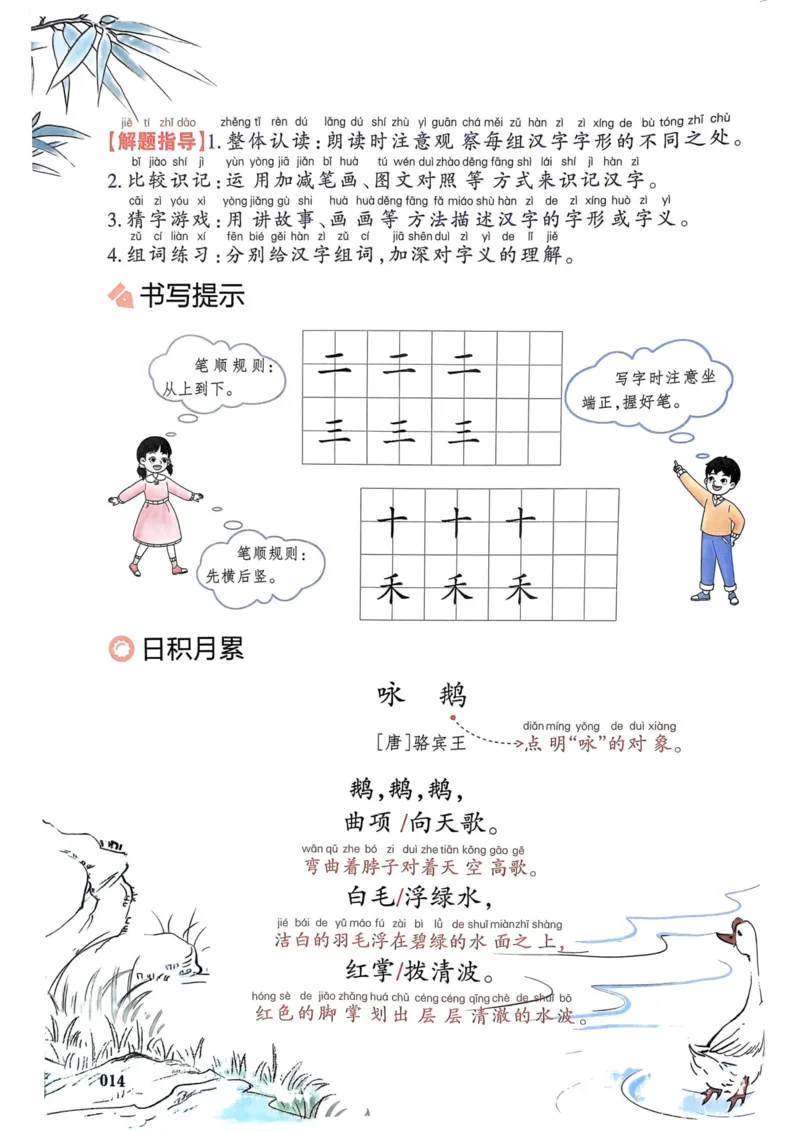 jiě tí zhǐ dǎo zhěng tǐ rèn dú lǎng dú shí zhù yì guān chá měi zǔ hàn zì zì xíng de bù tóng zhī chù
【解题指导】1.整体认读:朗读时注意观察每组汉字字形的不同之处。
bǐ jiào shí jì yùn yòng jiā jiǎn bǐ huà tú wén duì zhào děng fāng shì lái shí jì hàn zì
2.比较识记:运用加减笔画、图文对照等方式来识记汉字。
cāi zì yóu xì yòng jiǎng gù shi huà huà děng fāng fǎ miáo shù hàn zì de zì xíng huò zì yì
3.猜字游戏:用讲故事、画画等方法描述汉字的字形或字义。
zǔ cí liàn xí fēn bié gěi hàn zì zǔ cí jiā shēn duì zì yì de lǐ jiě
4.组词练习:分别给汉字组词,加深对字义的理解。
书写提示
笔顺规则:
从上到下。
二 二 二
三 三 三
写字时注意坐
端正,握好笔。
十 十 十
禾 禾 禾
笔顺规则:
先横后竖。
日积月累
咏 鹅
[唐]骆宾王
diǎn míng yǒng de duì xiàng
点明“咏”的对象。
鹅,鹅,鹅,
曲项/向天歌。
wān qū zhe bó zi duì zhe tiān kōng gāo gē
弯曲着脖子对着天空高歌。
白毛/浮绿水,
jié bái de yǔ máo fú zài bì lǜ de shuǐ miàn zhī shàng
洁白的羽毛浮在碧绿的水面之上,
红掌/拨清波。
hóng sè de jiǎo zhǎng huá chū céng céng qīng chè de shuǐ bō
红色的脚掌划出层层清澈的水波。
014